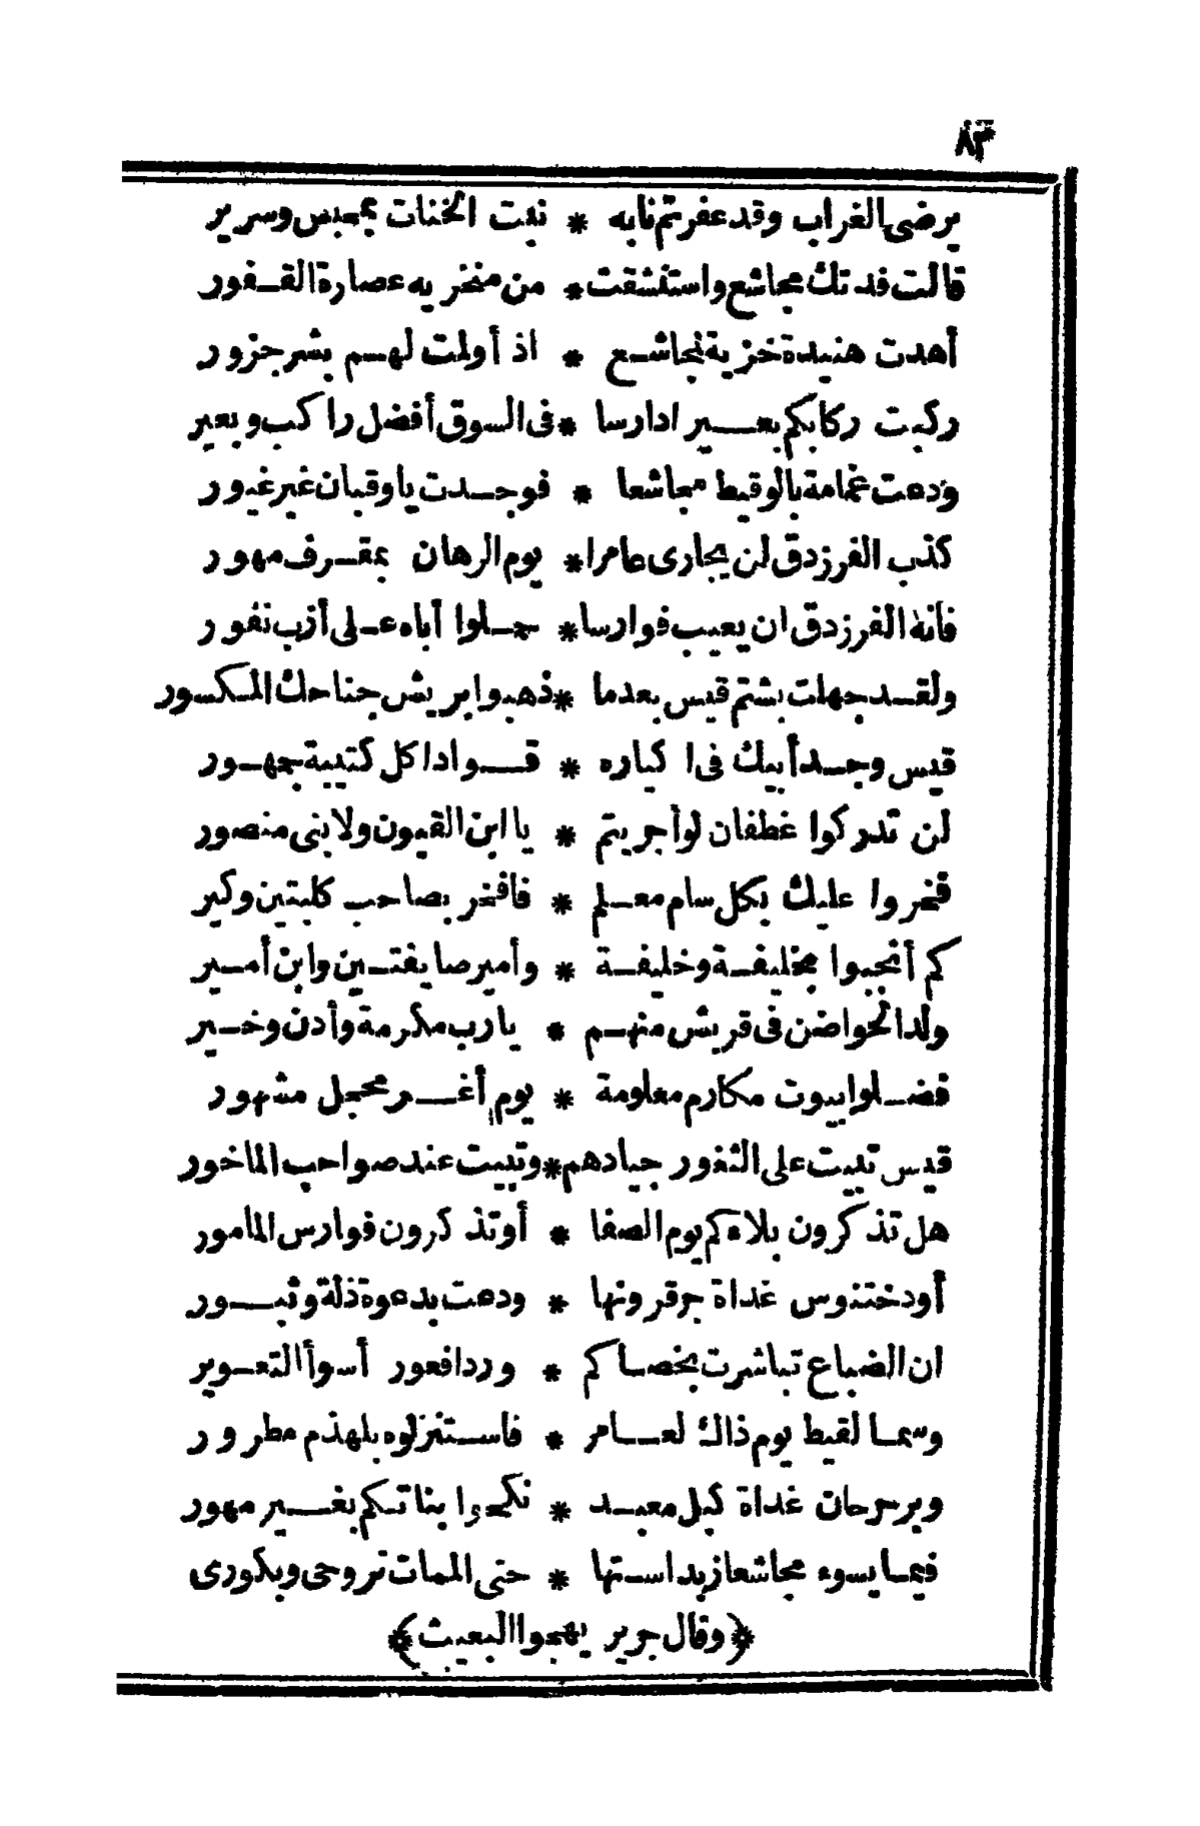 ٨٣
يرضى الغراب وقد عقرتم نابه * نبت الخنات بمحبس وسرير
قالت فدتك مجاشع واستنشقت * من منخريه عصارة القفور
أهدت هنيدة خزية لمجاشع * اذ أولمت لهم بشر جزور
ركبت ركابكم بعير ادارسا * فى السوق أفضل راكب وبعير
ودعت غمامة بالوقيط مجاشعا * فوجدت ياوقبان غير غيور
كذب الفرزدق لن يجارى عامرا * يوم الرهان بمقرف مهور
فانه الفرزدق ان يعيب فوارسا * حملوا أباه على أزب نفور
ولقد جهلت بشتم قيس بعدما * ذهبوا بريش جناحك المكسور
قيس وجد أبيك فى اكياره * قواد اكل كتيبة جمهور
لن تدركوا غطفان لو أجريتم * يا ابن القيون ولا بنى منصور
فخروا عليك بكل سام معلم * فافخر بصاحب كلبتين وكير
كم أنجبوا بخليفة وخليفة * وأمير صايفتين وابن أمير
ولد الحواضن فى قريش منهم * يارب مكرمة وأدن وخير
فضلوا بيوت مكارم معلومة * يوم أغر محجل مشهور
قيس تبيت على الثغور جيادهم * وتبيت عند صواحب الماخور
هل تذكرون بلاءكم يوم الصفا * أوتذكرون فوارس المامور
أودختنوس غداة جز قرونها * ودعت بدعوة ذلة وثبور
ان الضباع تباشرت بخصاكم * وردافعور أسوأ التعوير
وسما لقيط يوم ذاك لعامر * فاستنزلوه بلهذم مطرور
وبرحرحان غداة كبل معبد * نكحوا بناتكم بغير مهور
فيما يسوء مجاشعا زبد استها * حتى الممات تروحى وبكورى
﴿وقال جرير يهجوا البعيث﴾